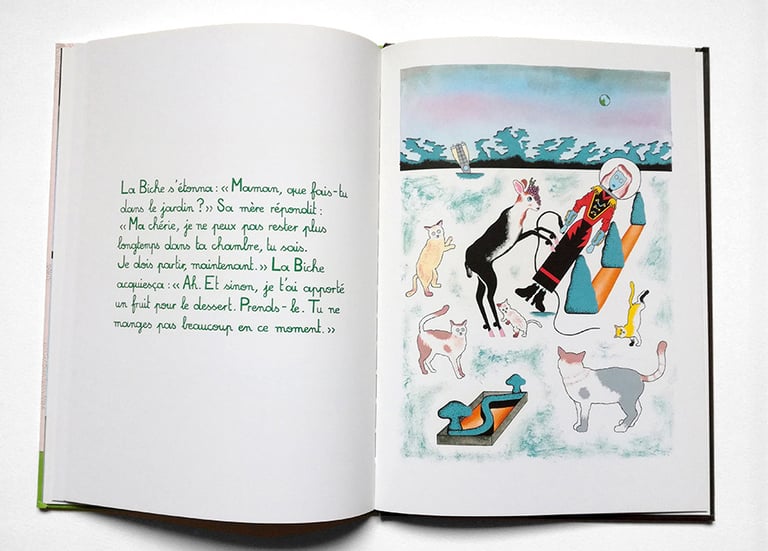 La Biche s'étonna : « Maman, que fais-tu
dans le jardin ? » Sa mère répondit :
« Ma chérie, je ne peux pas rester plus
longtemps dans ta chambre, tu sais.
Je dois partir, maintenant. » La Biche
acquiesça : « Ah. Et sinon, je t'ai apporté
un fruit pour le dessert. Prends-le. Tu ne
manges pas beaucoup en ce moment. »